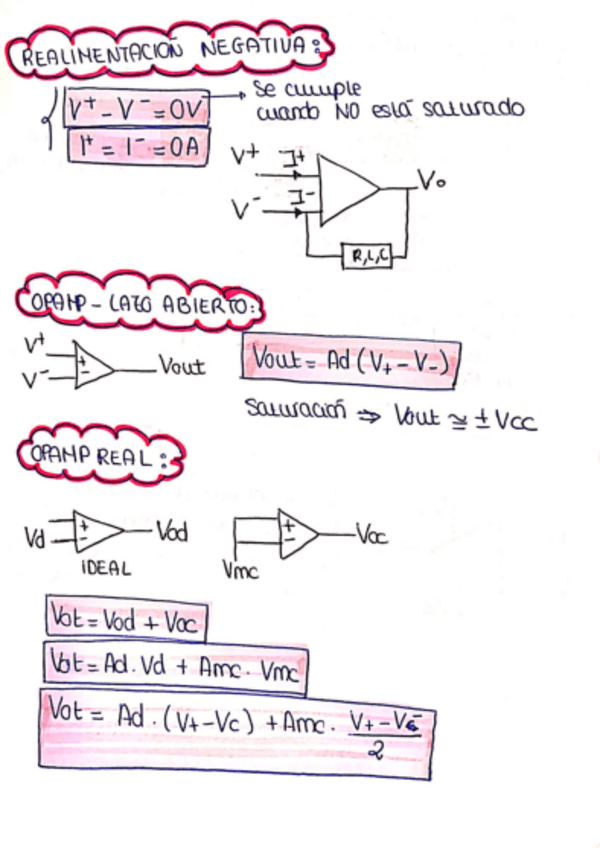 REALIMENTACIÓN NEGATIVA:
V⁺ - V⁻ = 0V → Se cumple
cuando NO está saturado
I⁺ = I⁻ = 0A
V+ I+
V⁻ I⁻
Vo
R,L,C
OPAMP - LAZO ABIERTO:
V+
V⁻
+
-
Vout
Vout = Ad (V+ - V-)
Saturación ⇒ Vout ≅ ± Vcc
OPAMP REAL:
Vd
+
-
Vod
IDEAL
Vmc
+
-
Voc
Vot = Vod + Voc
Vot = Ad. Vd + Amc. Vmc
Vot = Ad. (V+-Vc) + Amc. V+-V-
2